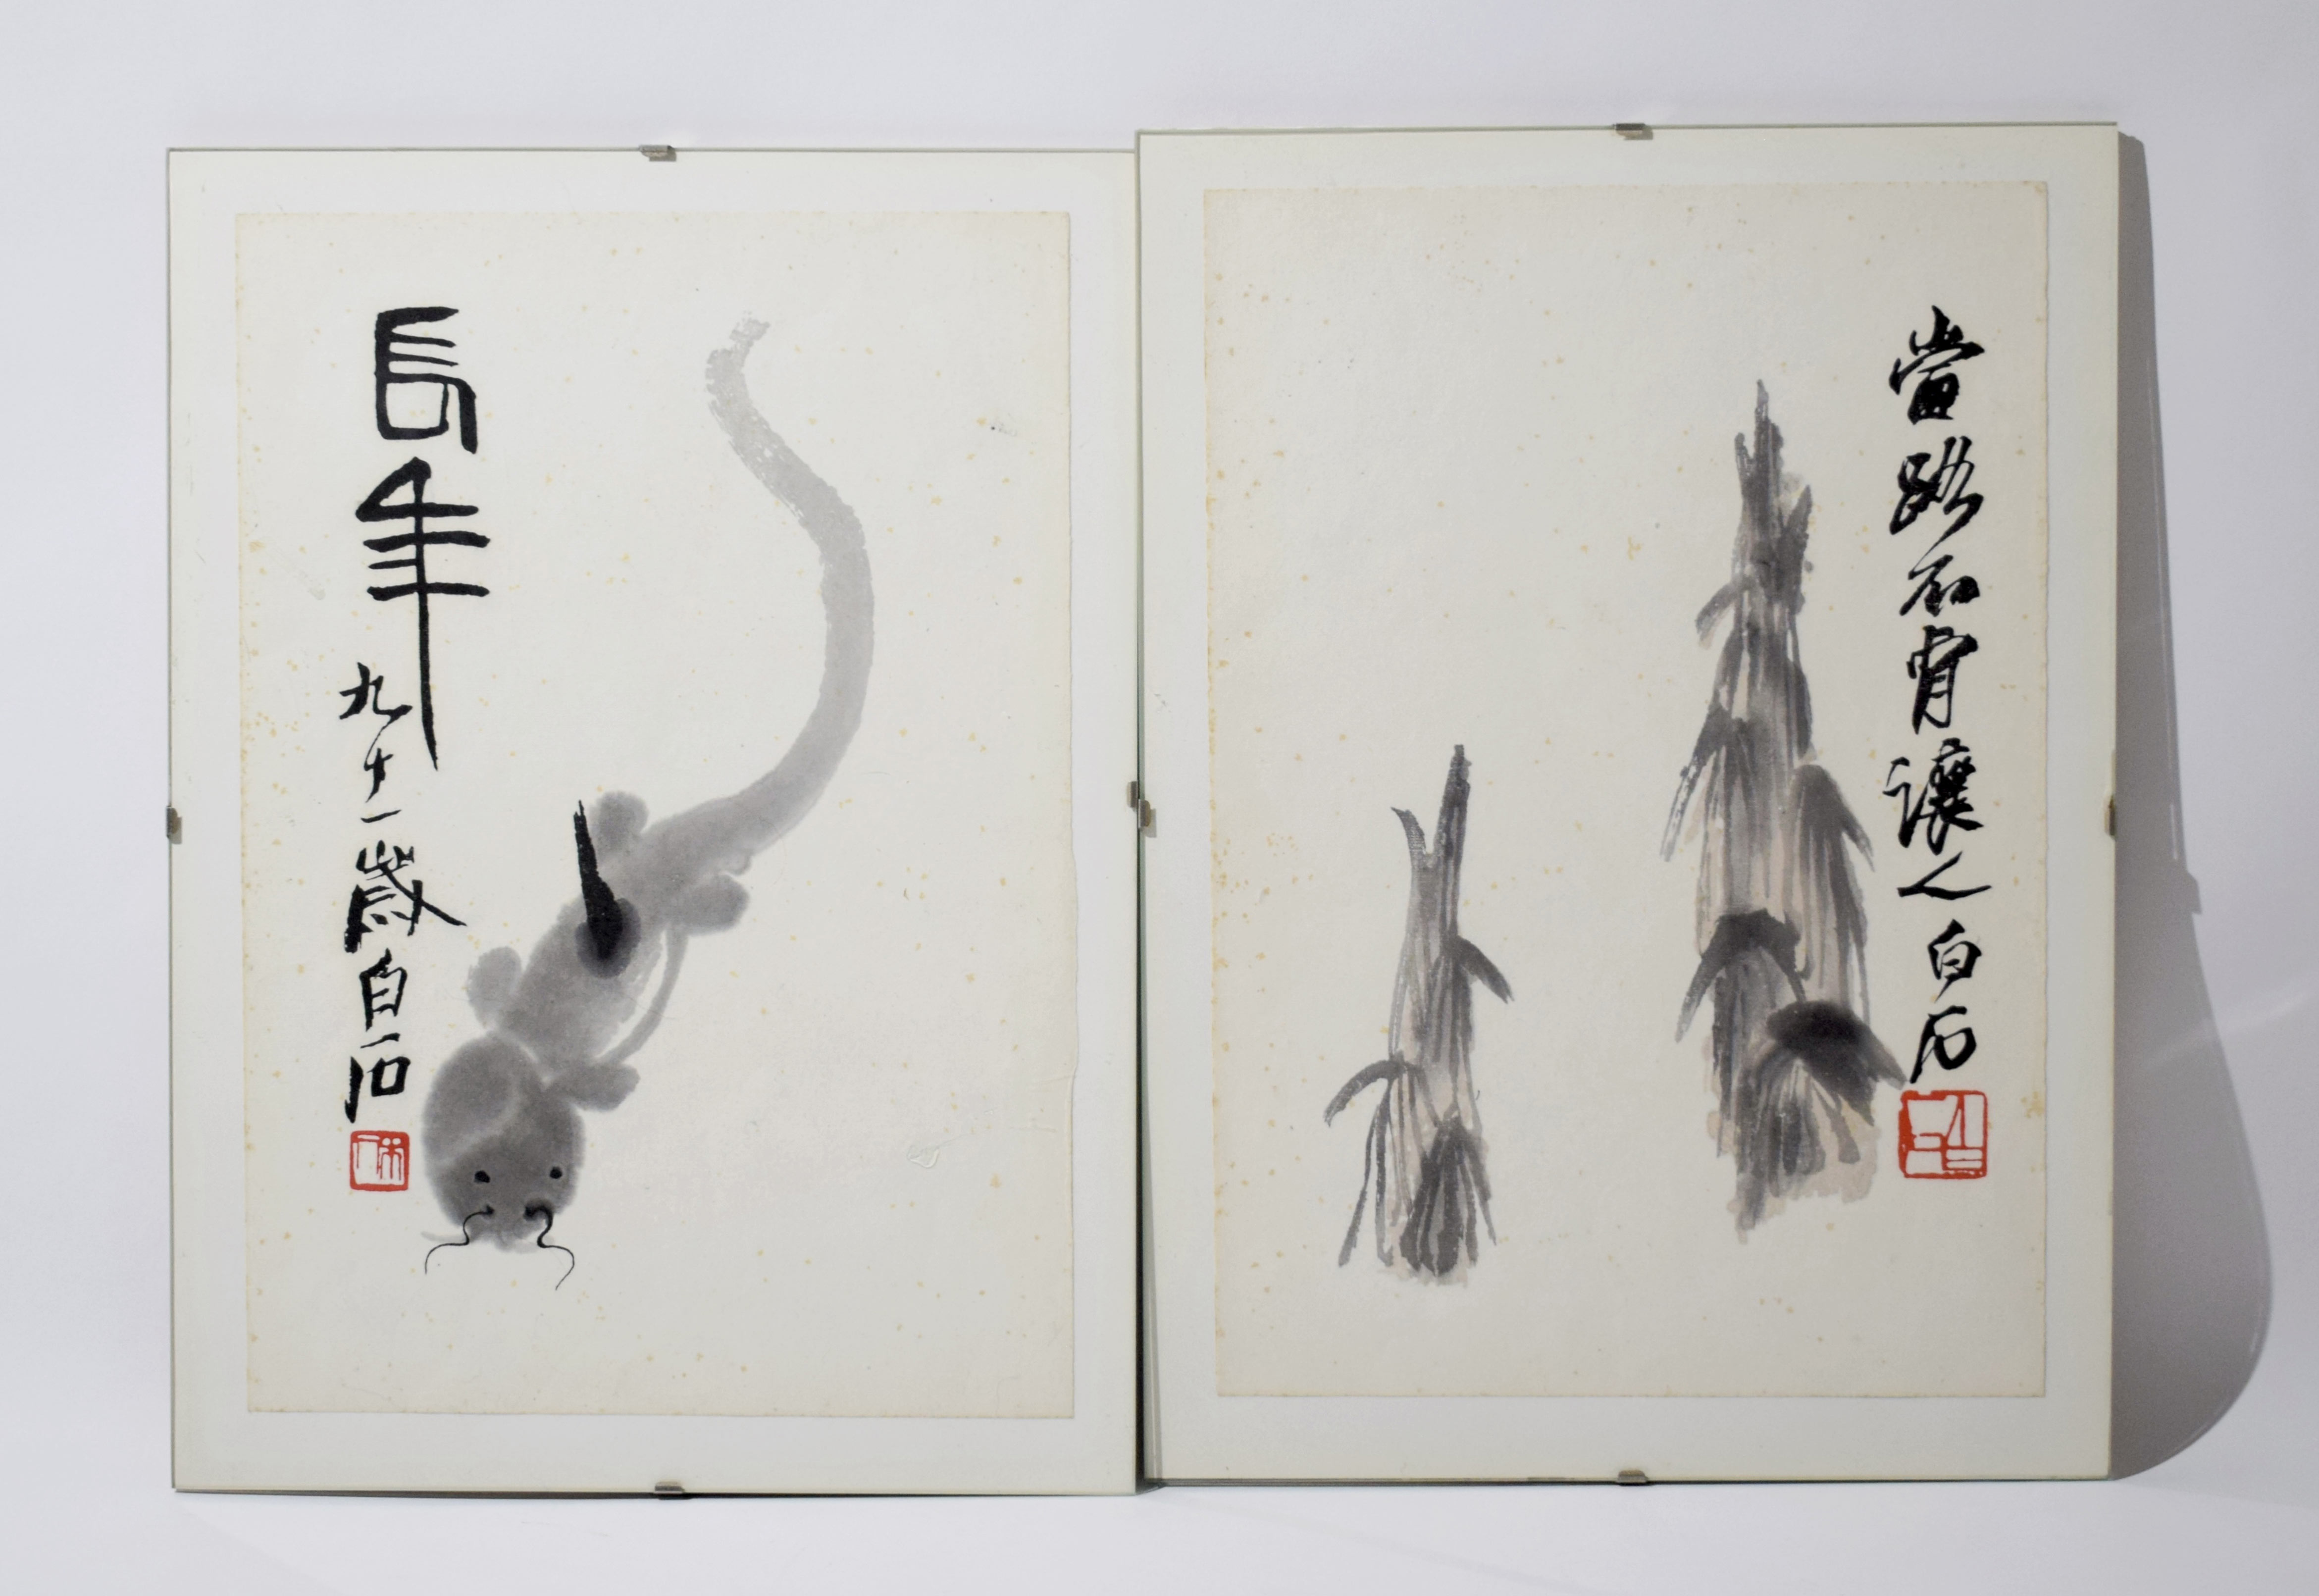 長年
九十一歲白石
當路不肯讓人白石